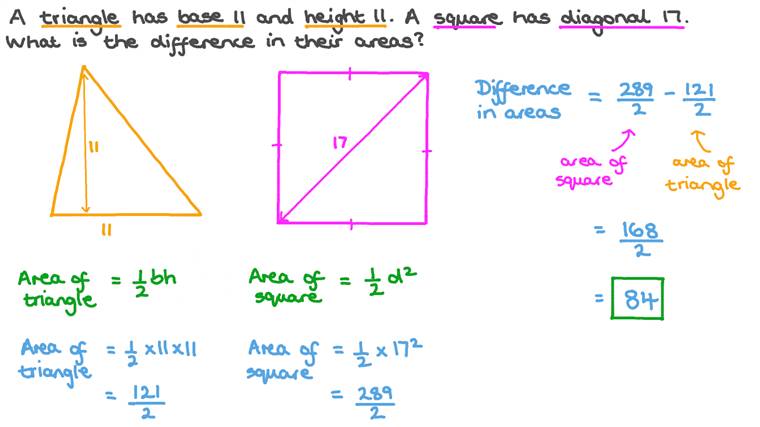 A triangle has base 11 and height 11. A square has diagonal 17.
What is the difference in their areas?
11
11
17
Area of triangle = 1/2 bh
Area of triangle = 1/2 × 11 × 11
= 121/2
Area of square = 1/2 d²
Area of square = 1/2 × 17²
= 289/2
Difference in areas = 289/2 - 121/2
area of square
area of triangle
= 168/2
= 84